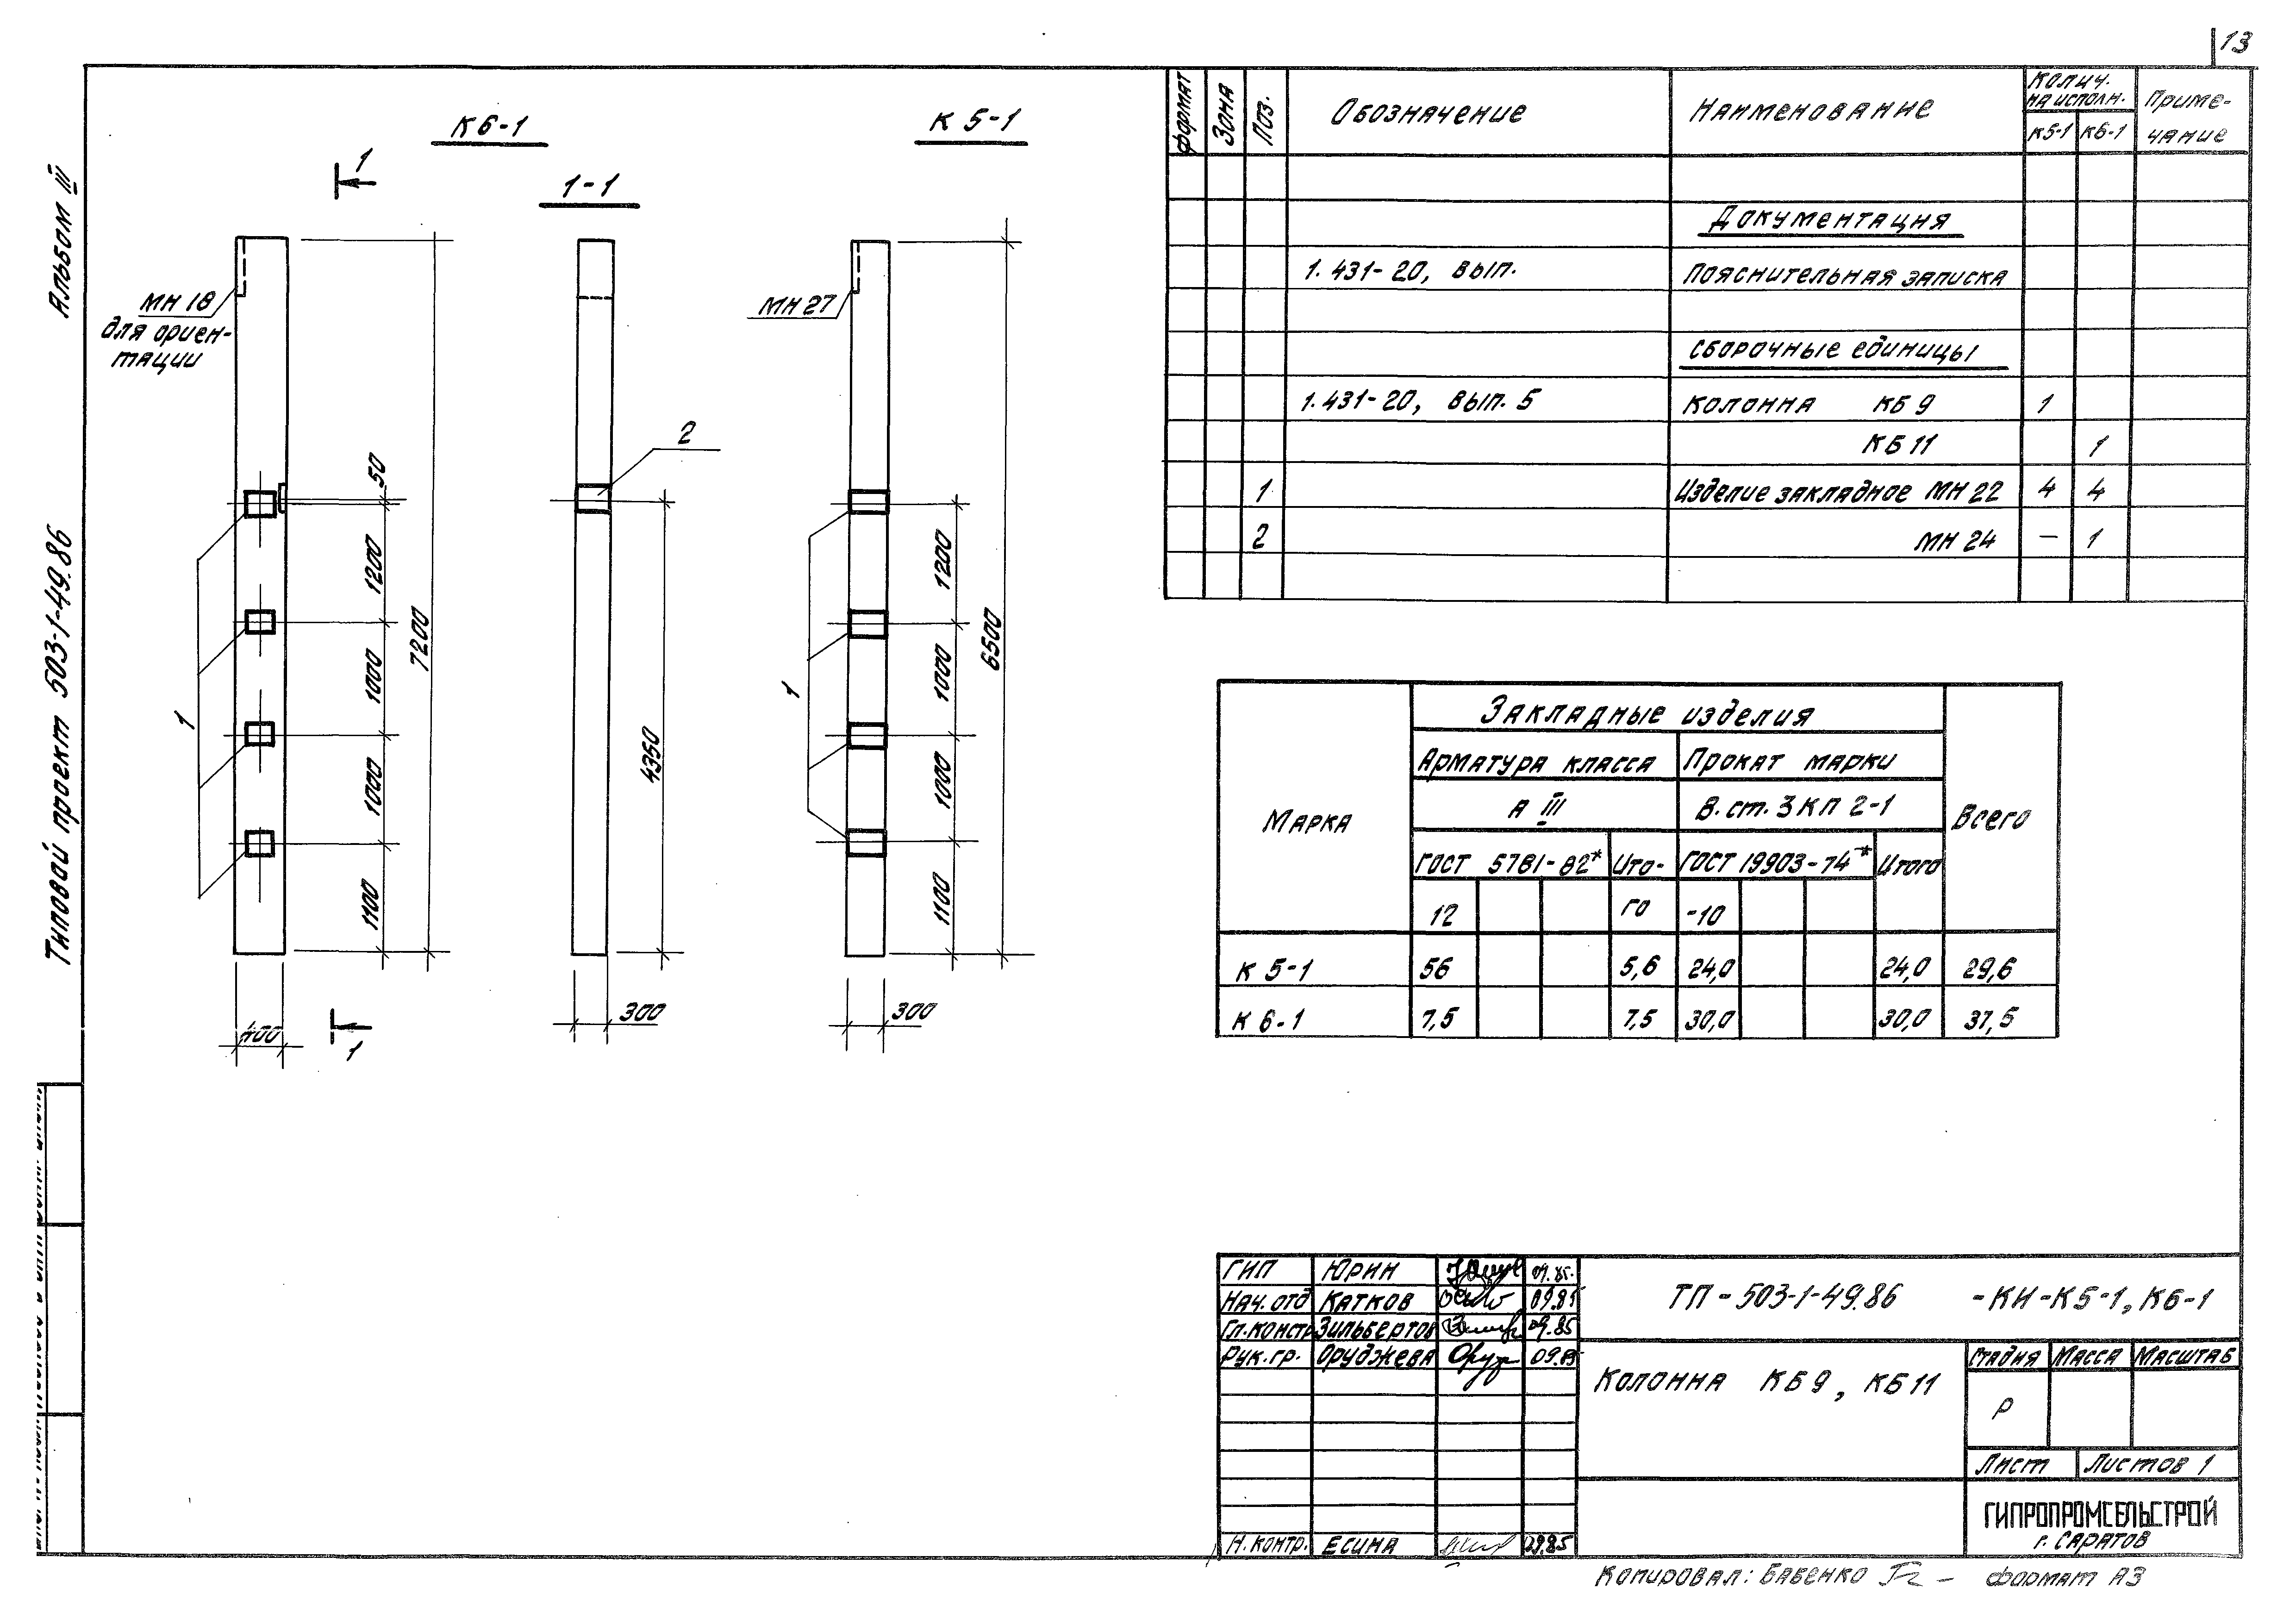 13
Альбом III
Типовой проект 503-1-49.86
К 6-1
1
1-1
К 5-1
МН 18
для ориен-
тации
МН 27
2
1
50
1200
1000
1000
1100
7200
400
1
4350
300
1
1200
1000
1000
1100
6500
300
Формат
Зона
Поз.
Обозначение
Наименование
Колич.
на исполн.
К5-1 К6-1
Приме-
чание
Документация
1.431-20, вып. Пояснительная записка
Сборочные единицы
1.431-20, вып. 5 Колонна КБ 9 1
КБ 11 1
1 Изделие закладное МН 22 4 4
2 МН 24 — 1
Марка
Закладные изделия
Арматура класса Прокат марки
А III В.ст.3 кп 2-1
Всего
ГОСТ 5781-82* Ито- ГОСТ 19903-74* Итого
12 го -10
К 5-1 56 5,6 24,0 24,0 29,6
К 6-1 7,5 7,5 30,0 30,0 37,5
ГИП Юрин 09.85.
Нач. отд Катков 09.85
Гл.констр Зильбертов 09.85
Рук. гр. Оруджева 09.85
Н. контр. Есина 09.85
ТП-503-1-49.86 -КИ-К5-1, К6-1
Колонна КБ9, КБ11
Стадия Масса Масштаб
Р
Лист Листов 1
ГИПРОПРОМСЕЛЬСТРОЙ
г. Саратов
Копировал: Бабенко формат А3